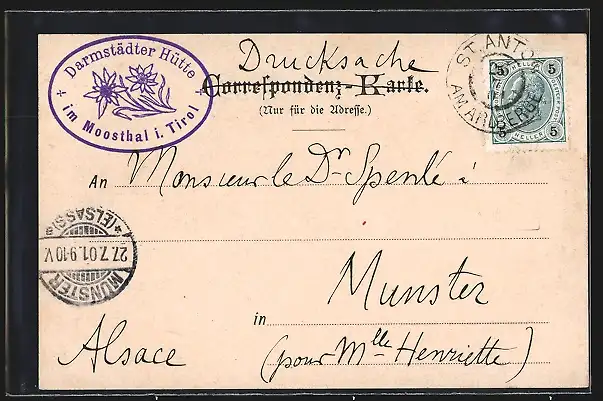 Darmstädter Hütte
im Moosthal i. Tirol
Drucksache
Correspondenz-Karte.
(Nur für die Adresse.)
ST. ANTON
AM ARLBERGE
5 5
5 5
HELLER
An Monsieur le Dr Spenlé
MÜNSTER
27.7.01.9-10V.
*(ELSASS)a
Munster
in
Alsace (pour Mlle Henriette)